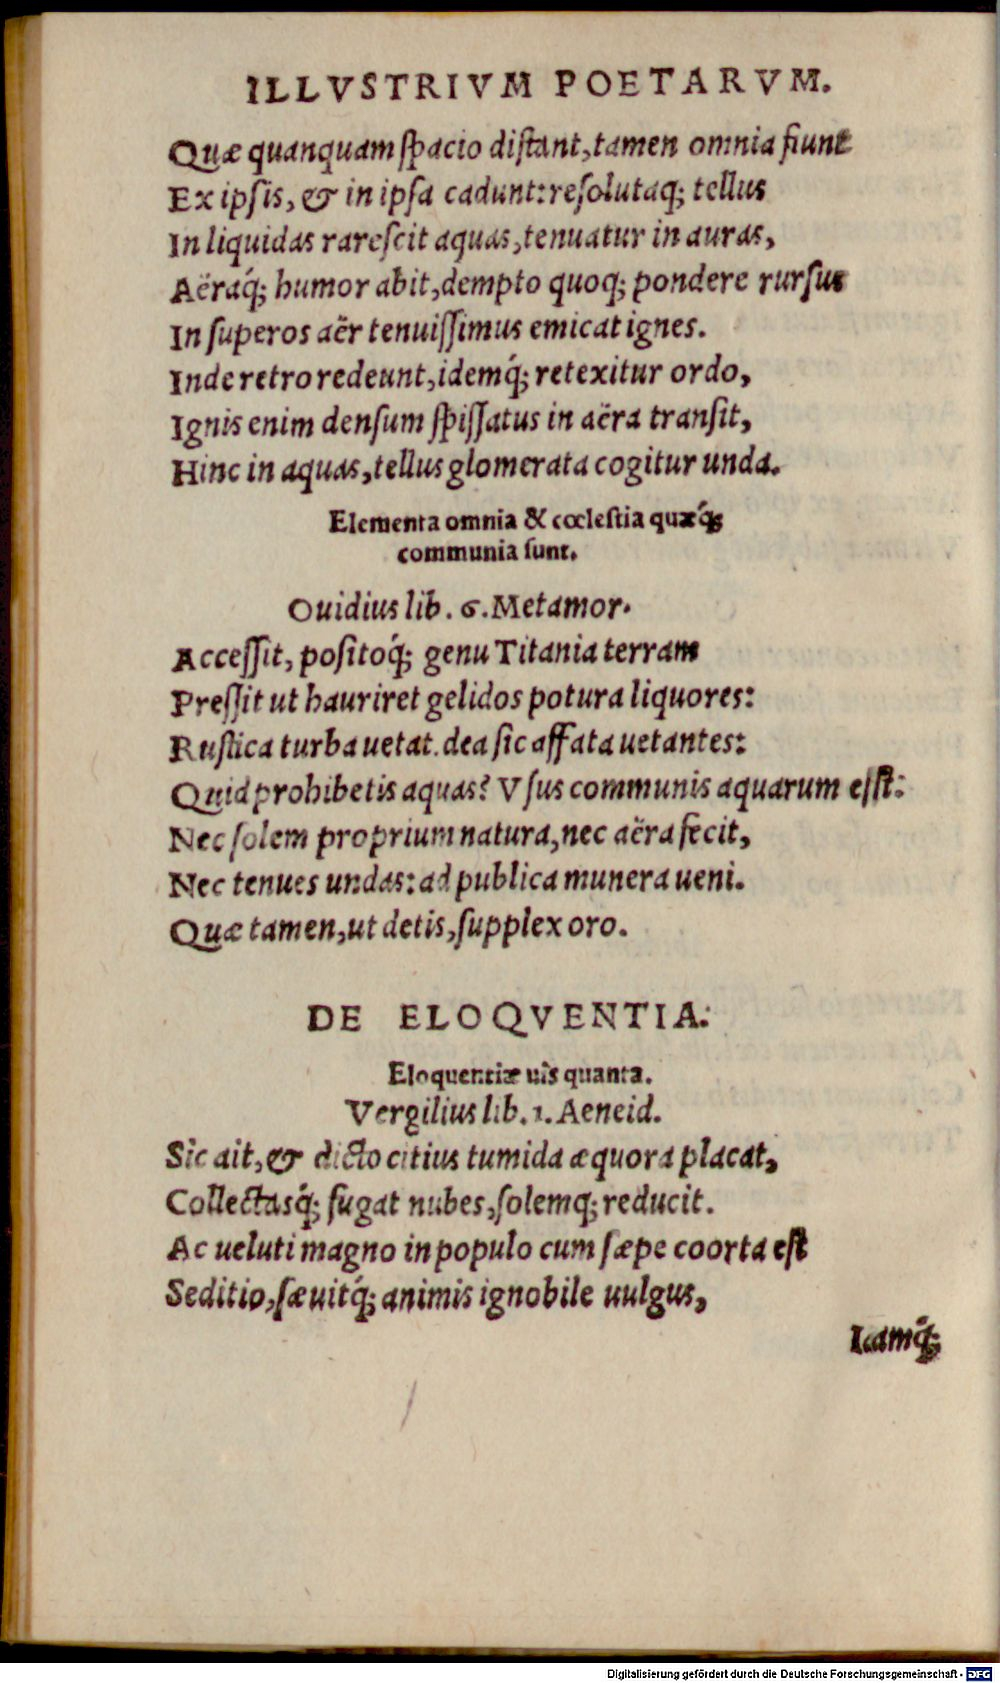 ILLVSTRIVM POETARVM.
Quæ quanquam ſpacio diſtant, tamen omnia fiunt
Ex ipſis, & in ipſa cadunt: reſolutaq; tellus
In liquidas rareſcit aquas, tenuatur in auras,
Aëraq́; humor abit, dempto quoq; pondere rurſus
In ſuperos aër tenuiſſimus emicat ignes.
Inde retro redeunt, idemq́; retexitur ordo,
Ignis enim denſum ſpiſſatus in aëra tranſit,
Hinc in aquas, tellus glomerata cogitur unda.
Elementa omnia & cœleſtia quæq́;
communia ſunt.
Ouidius lib. 6. Metamor.
Acceſſit, poſitoq́; genu Titania terram
Preſſit ut hauriret gelidos potura liquores:
Ruſtica turba uetat. dea ſic affata uetantes:
Quid prohibetis aquas? Vſus communis aquarum eſſt:
Nec ſolem proprium natura, nec aëra fecit,
Nec tenues undas: ad publica munera ueni.
Quæ tamen, ut detis, ſupplex oro.
DE ELOQVENTIA.
Eloquentiæ uis quanta.
Vergilius lib. 1. Aeneid.
Sic ait, & dicto citius tumida æquora placat,
Collectasq́; fugat nubes, ſolemq; reducit.
Ac ueluti magno in populo cum ſæpe coorta eſt
Seditio, ſæuitq́; animis ignobile uulgus,
Iamq́;
Digitalisierung gefördert durch die Deutsche Forschungsgemeinschaft - DFG